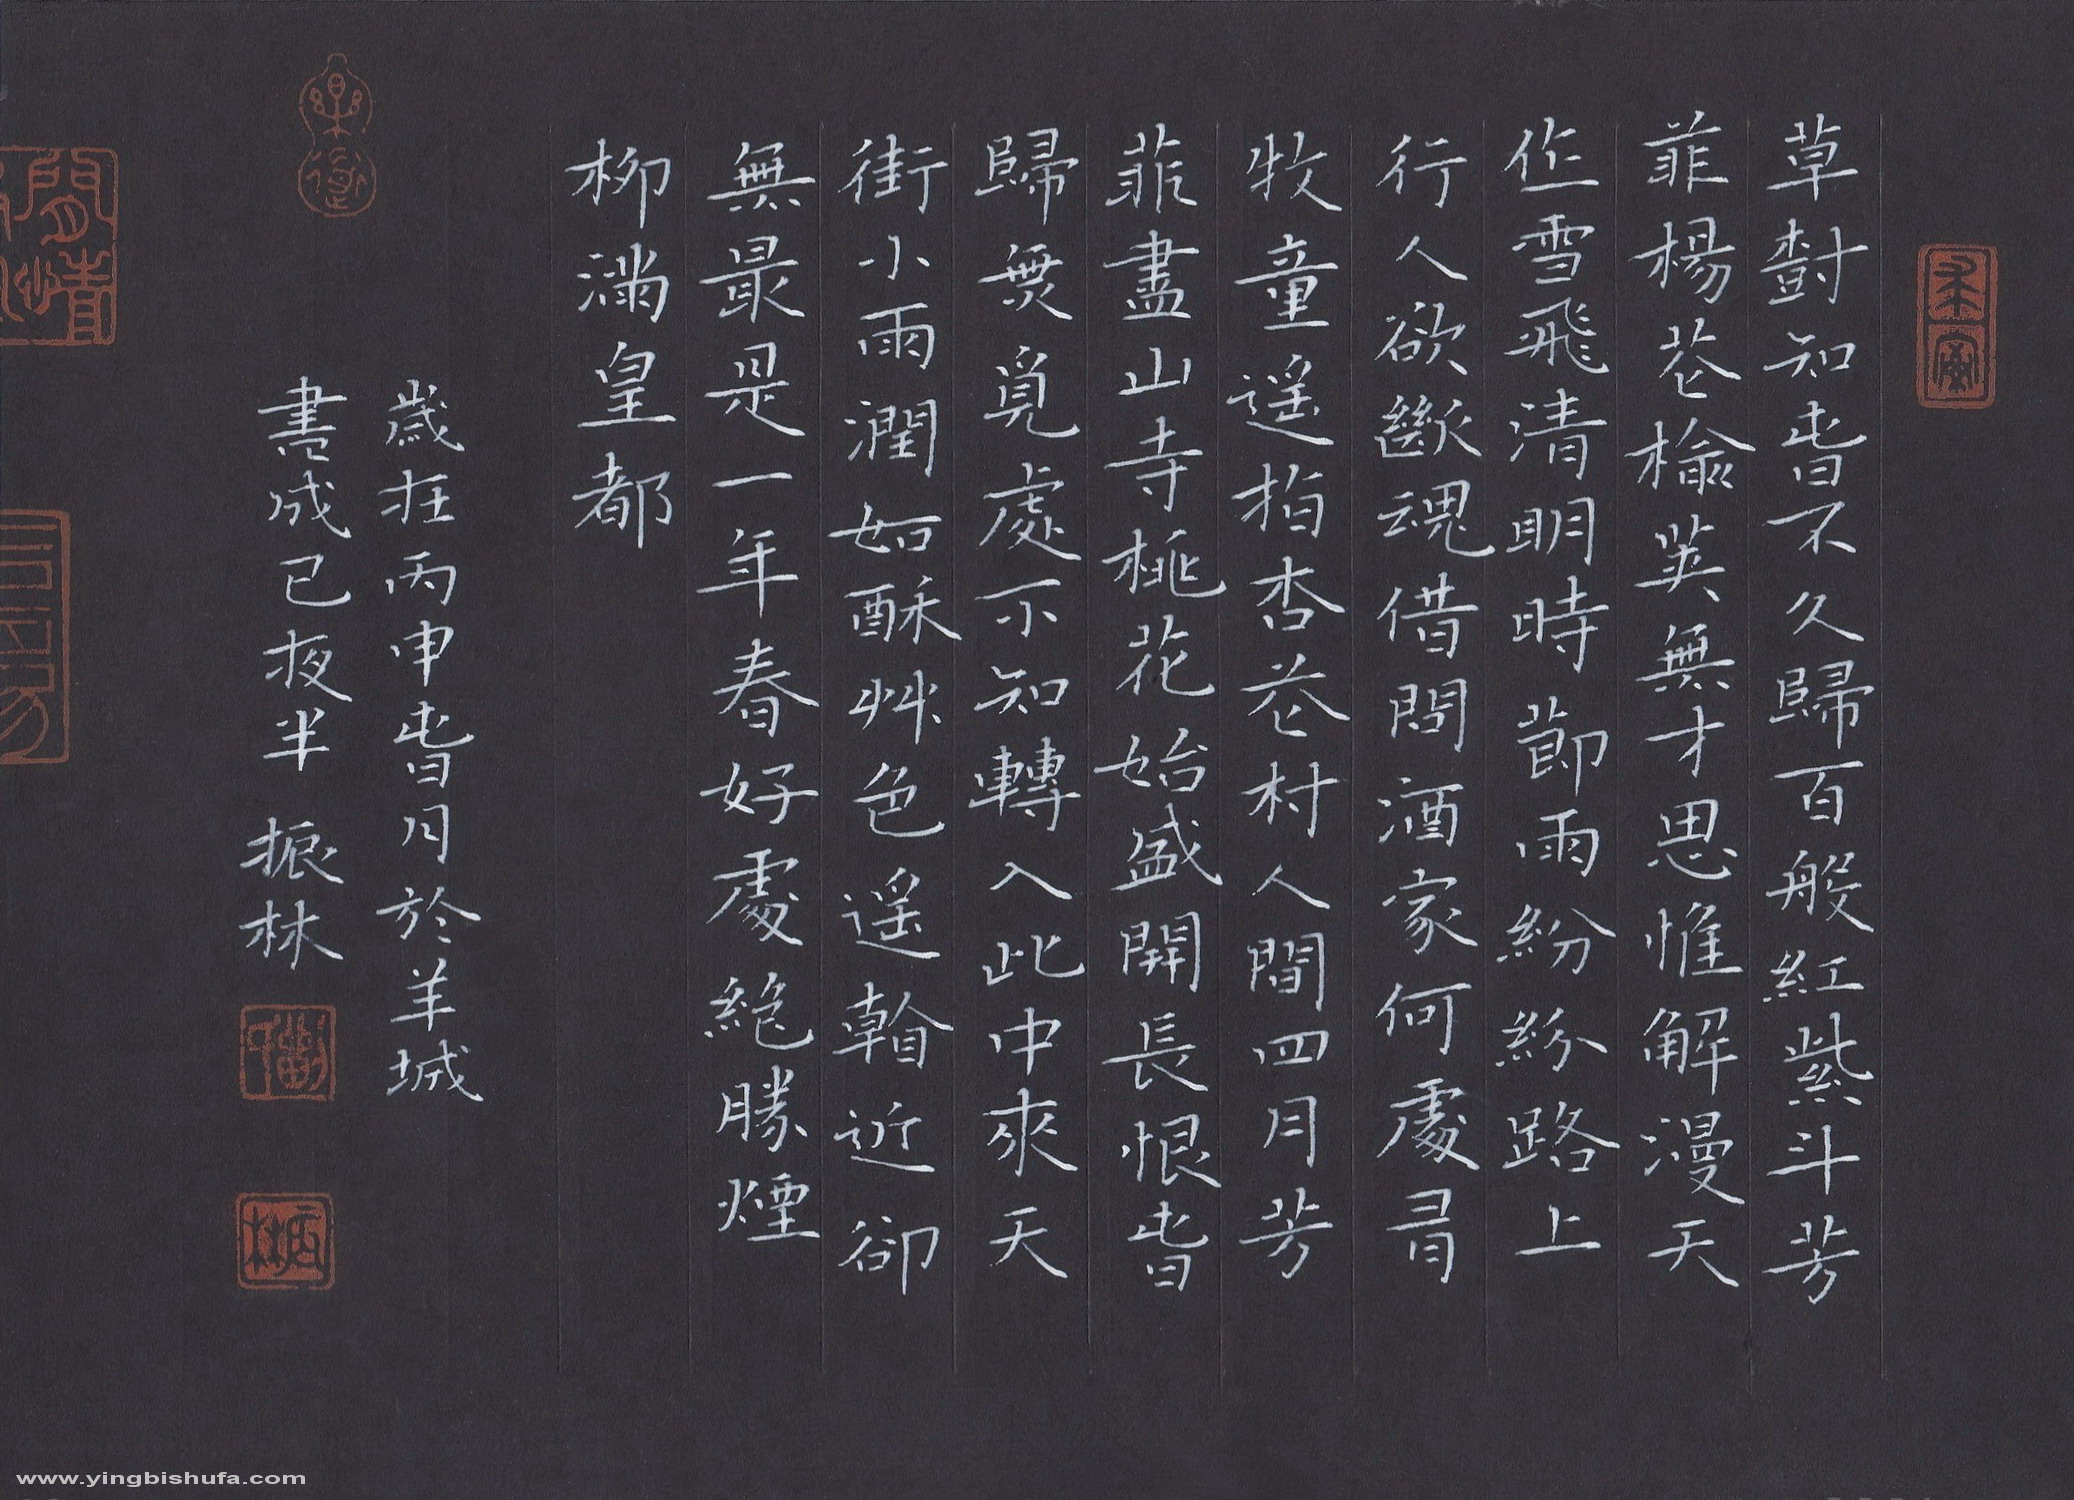 草樹知旾不久歸百般紅紫斗芳
菲楊花榆莢無才思惟解漫天
作雪飛清明時節雨紛紛路上
行人欲斷魂借問酒家何處有
牧童遥指杏花村人間四月芳
菲盡山寺桃花始盛開長恨旾
歸無覓處不知轉入此中來天
街小雨潤如酥艸色遥看近卻
無最是一年春好處絕勝煙
柳滿皇都
歲在丙申旾月於羊城
書成已夜半 振林
www.yingbishufa.com